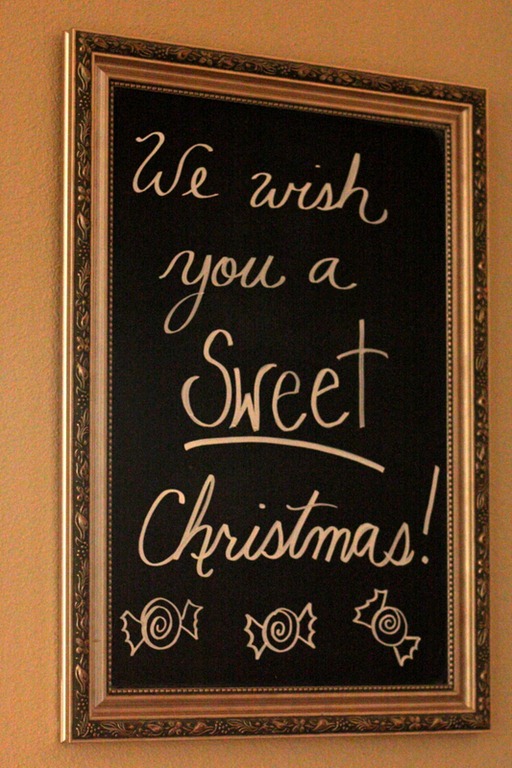 We wish
you a
Sweet
Christmas!